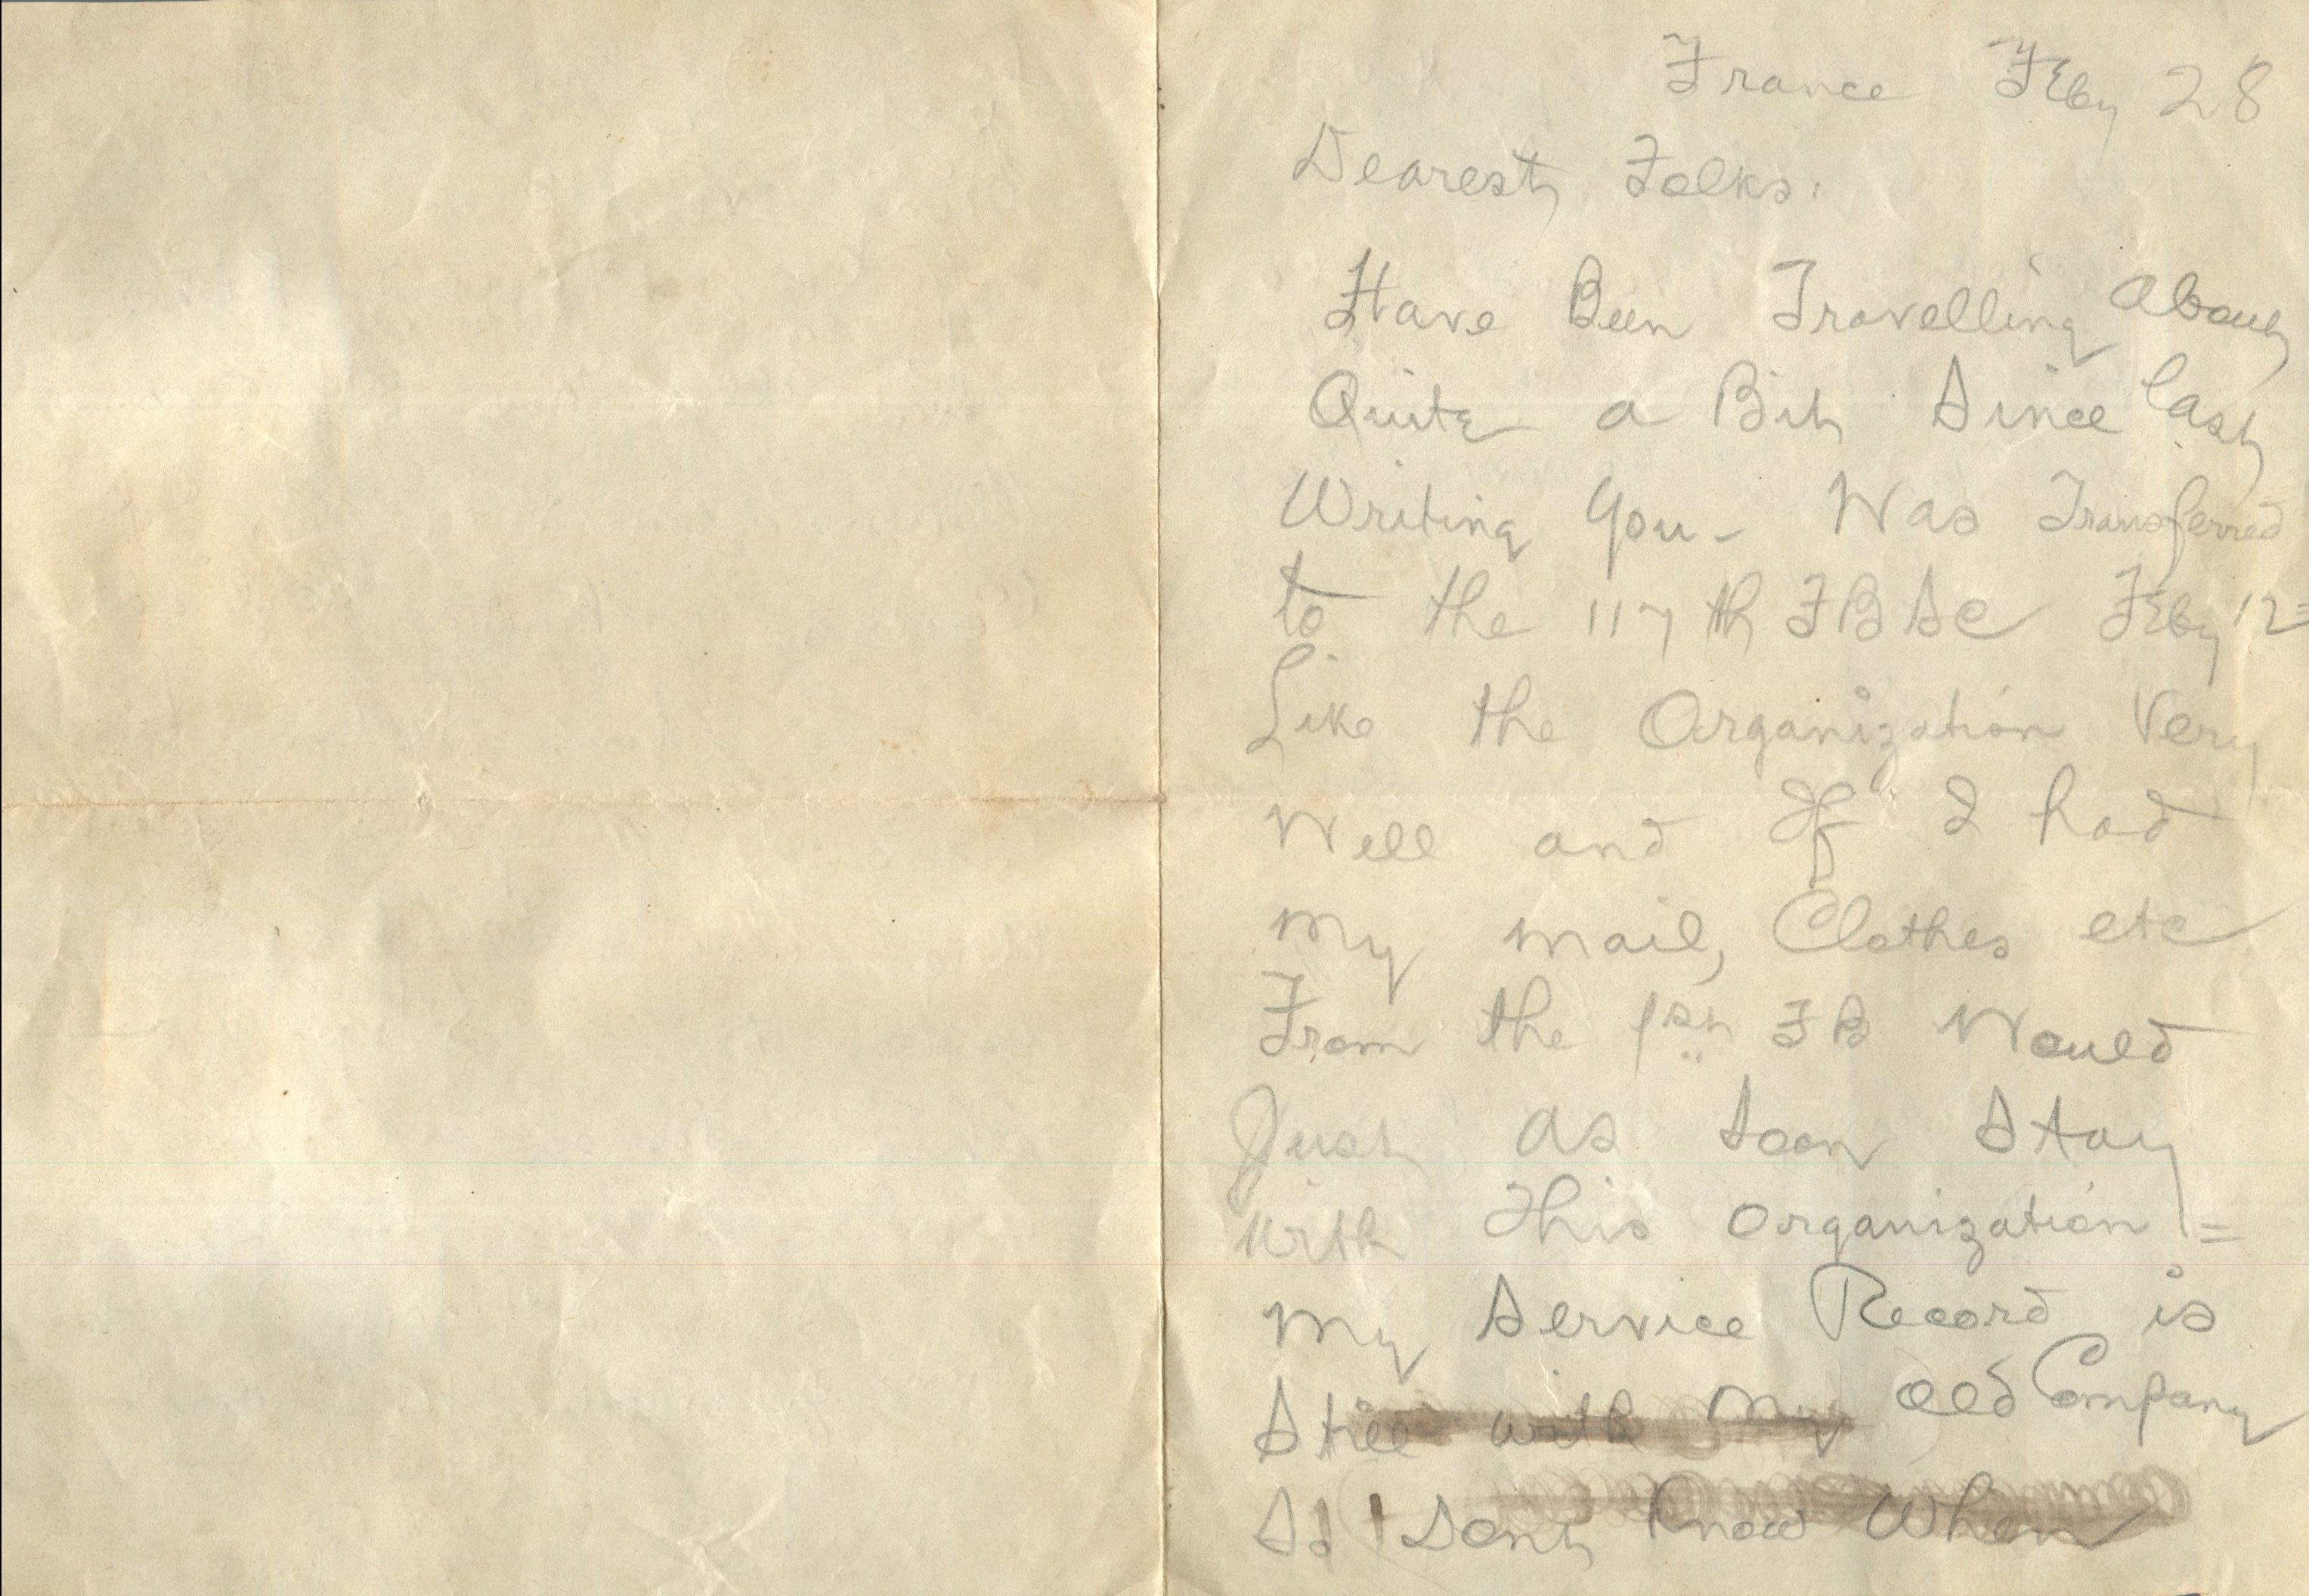 France Feby 28
Dearest Folks:
Have Been Travelling about
Quite a Bit Since last
Writing you - Was Transferred
to the 117th FBSC Feby 12
Like the Organization Very
Well and If I had
my mail, Clothes etc
From the 1st FB Would
Just as soon Stay
with This organization =
my Service Record is
Still with my old Company
So I Dont know When